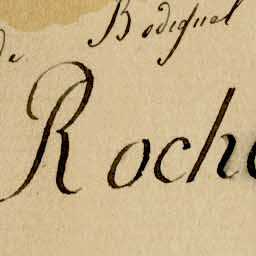 Bodiguel
de
Roche